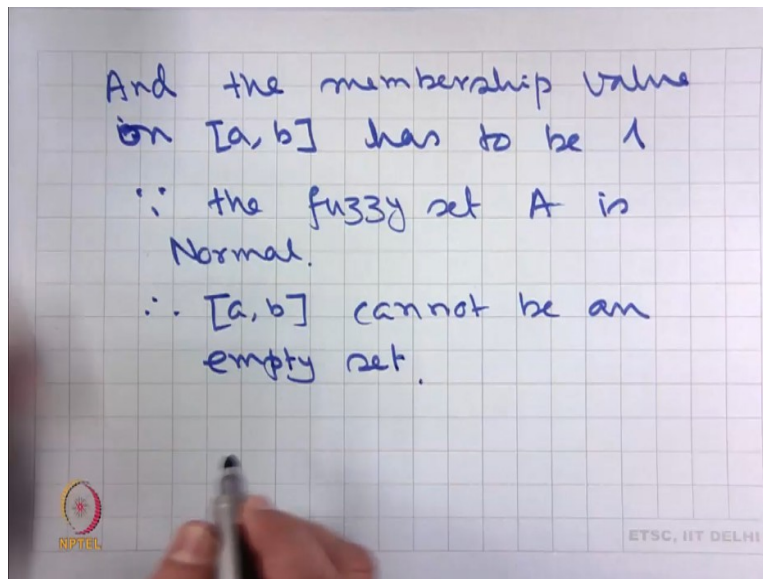 And the membership value
on [a, b] has to be 1
∵ the fuzzy set A is
Normal.
∴ [a, b] cannot be an
empty set.
NPTEL
ETSC, IIT DELHI